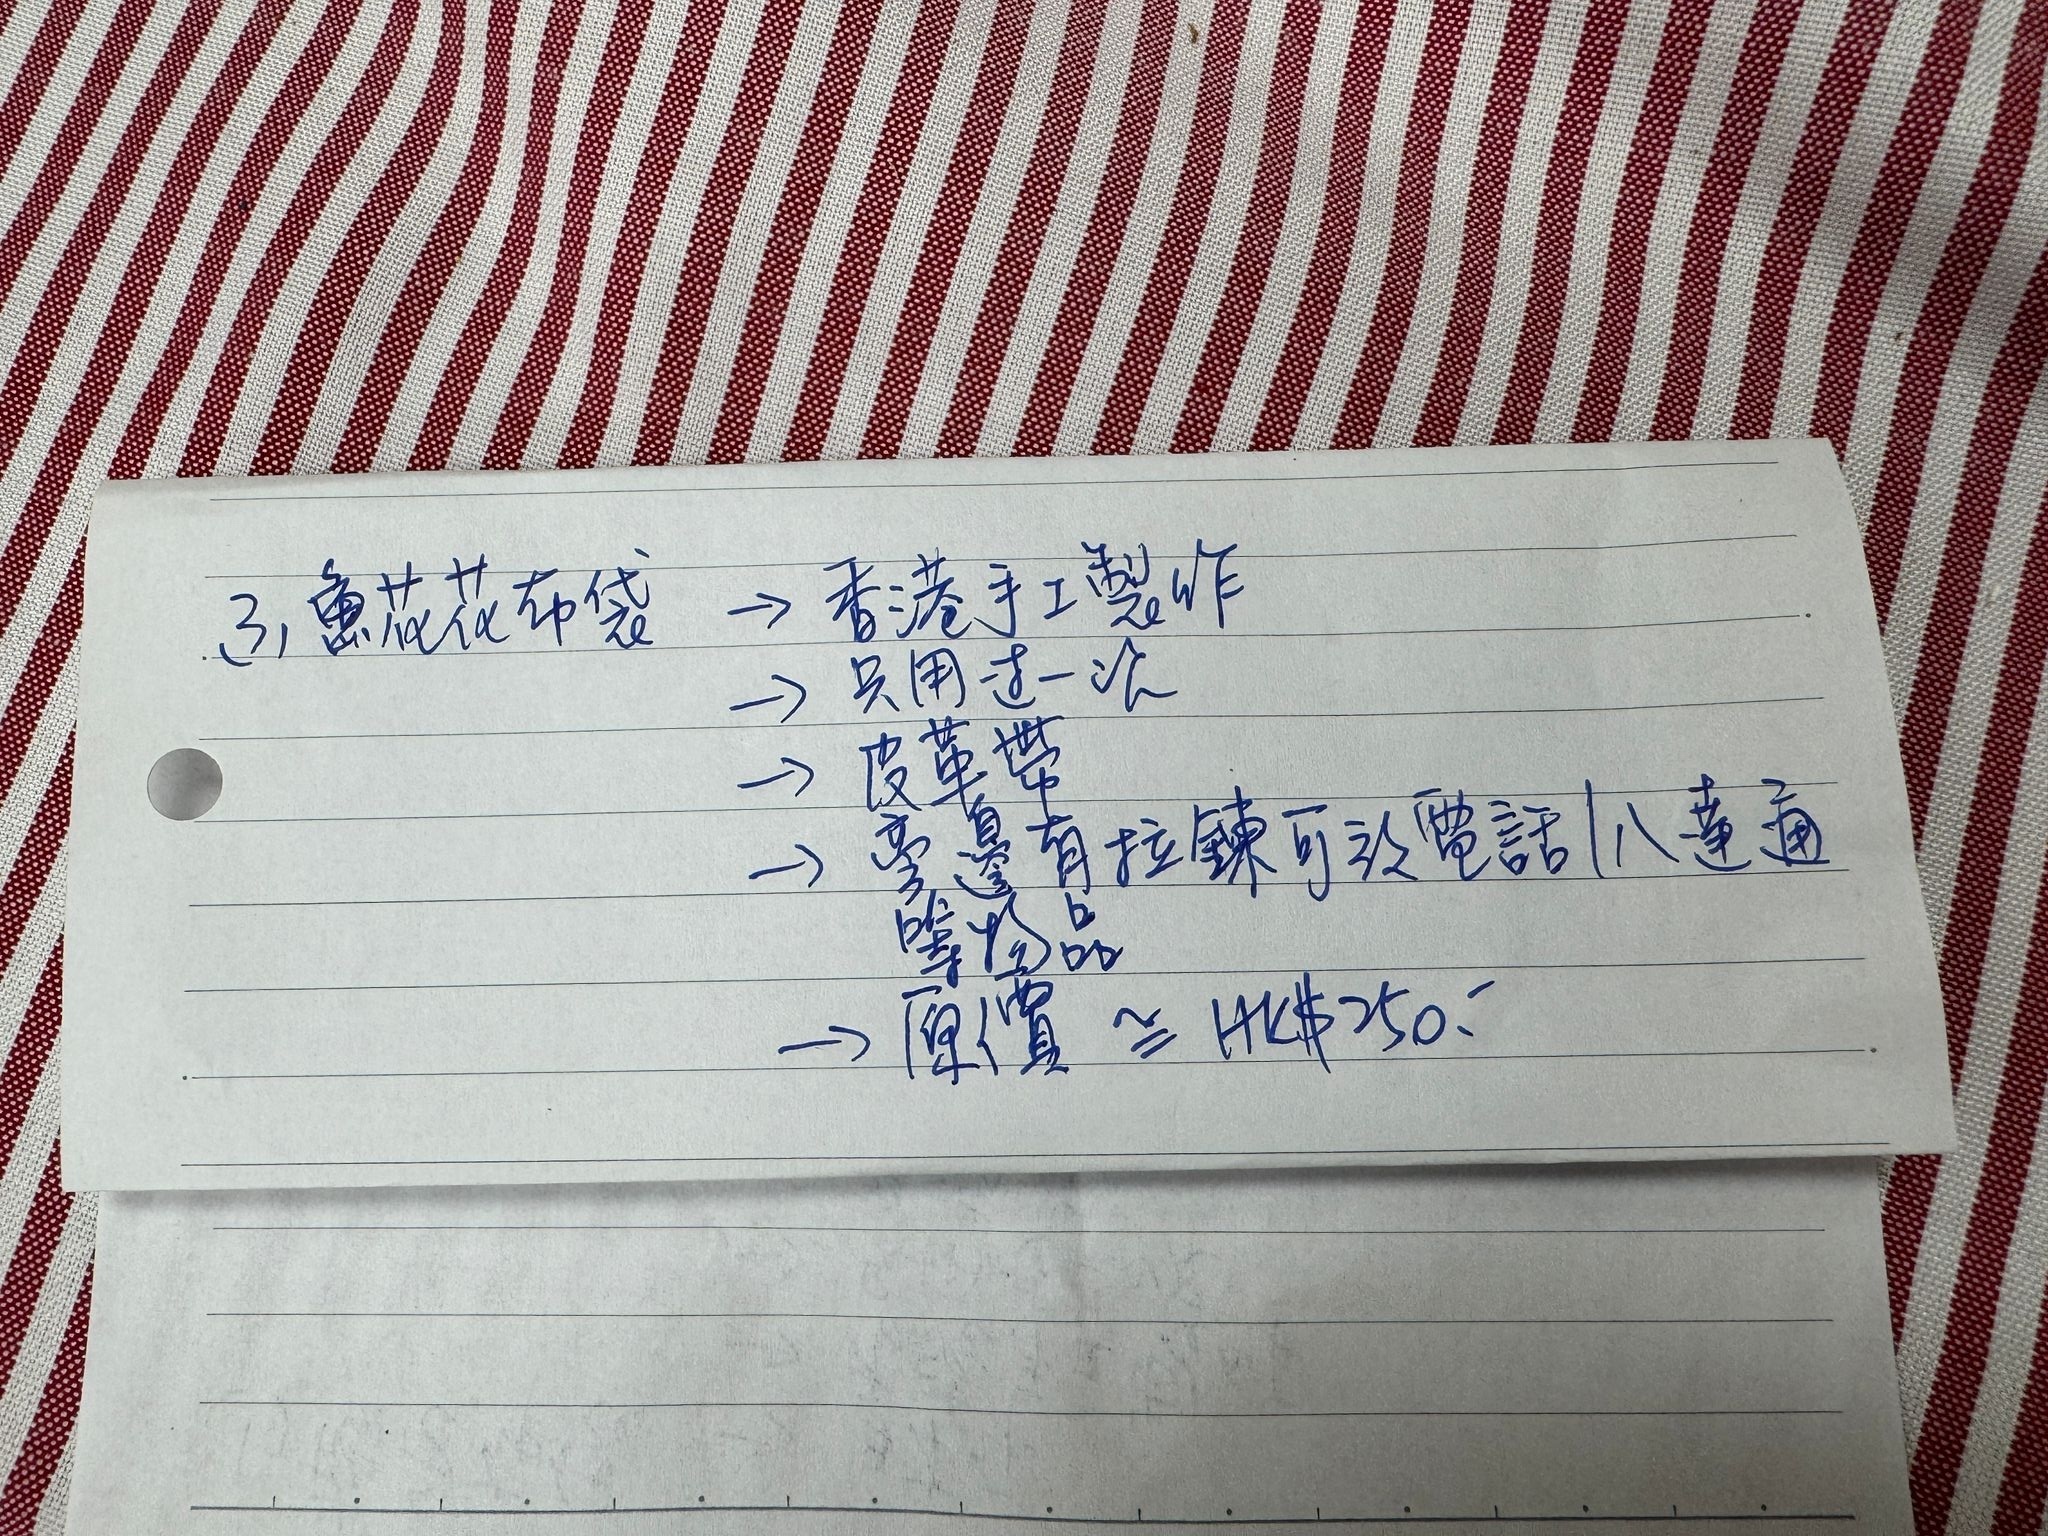 3, 魚花花布袋 → 香港手工製作
→ 只用过一次
→ 皮革帶
→ 旁邊有拉鍊可放電話/八達通
等物品
→ 原價 ≈ HK$250.-